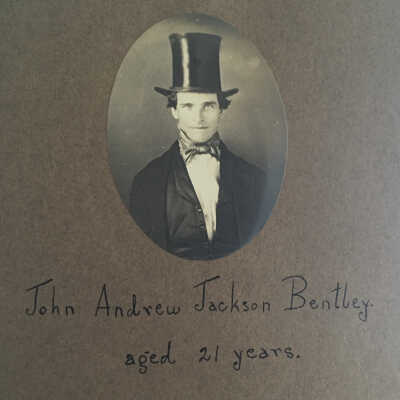 John Andrew Jackson Bentley.
aged 21 years.